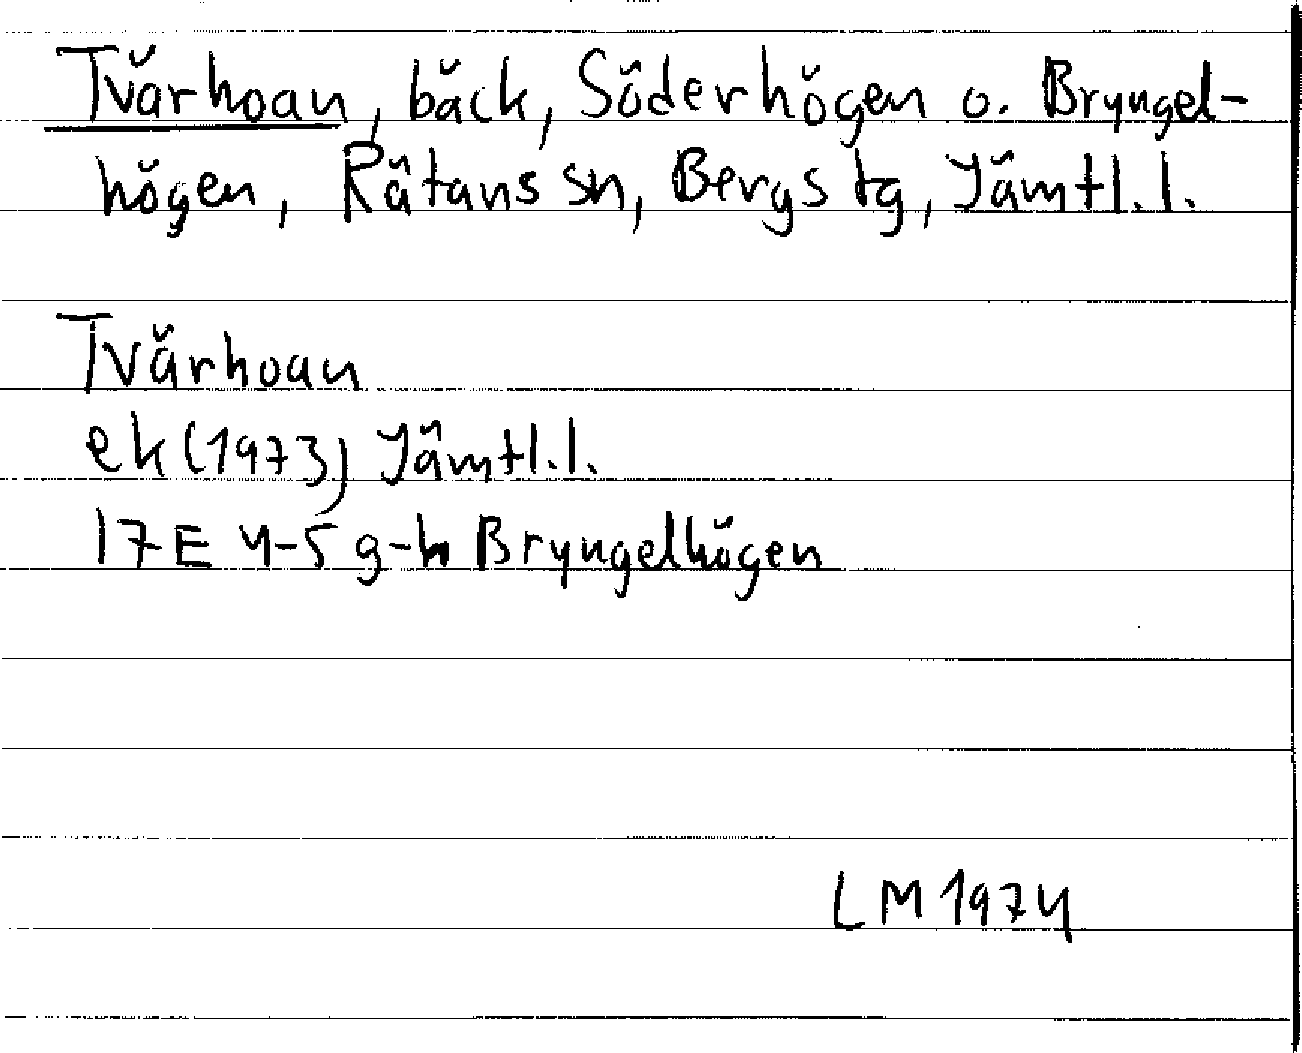 Tvärhoan, bäck, Söderhögen o. Bryngel-
högen, Rätans sn, Bergs tg, Jämtl.l.
Tvärhoan
ek (1973) Jämtl.l.
17E 4-5 g-h Bryngelhögen
LM 1974